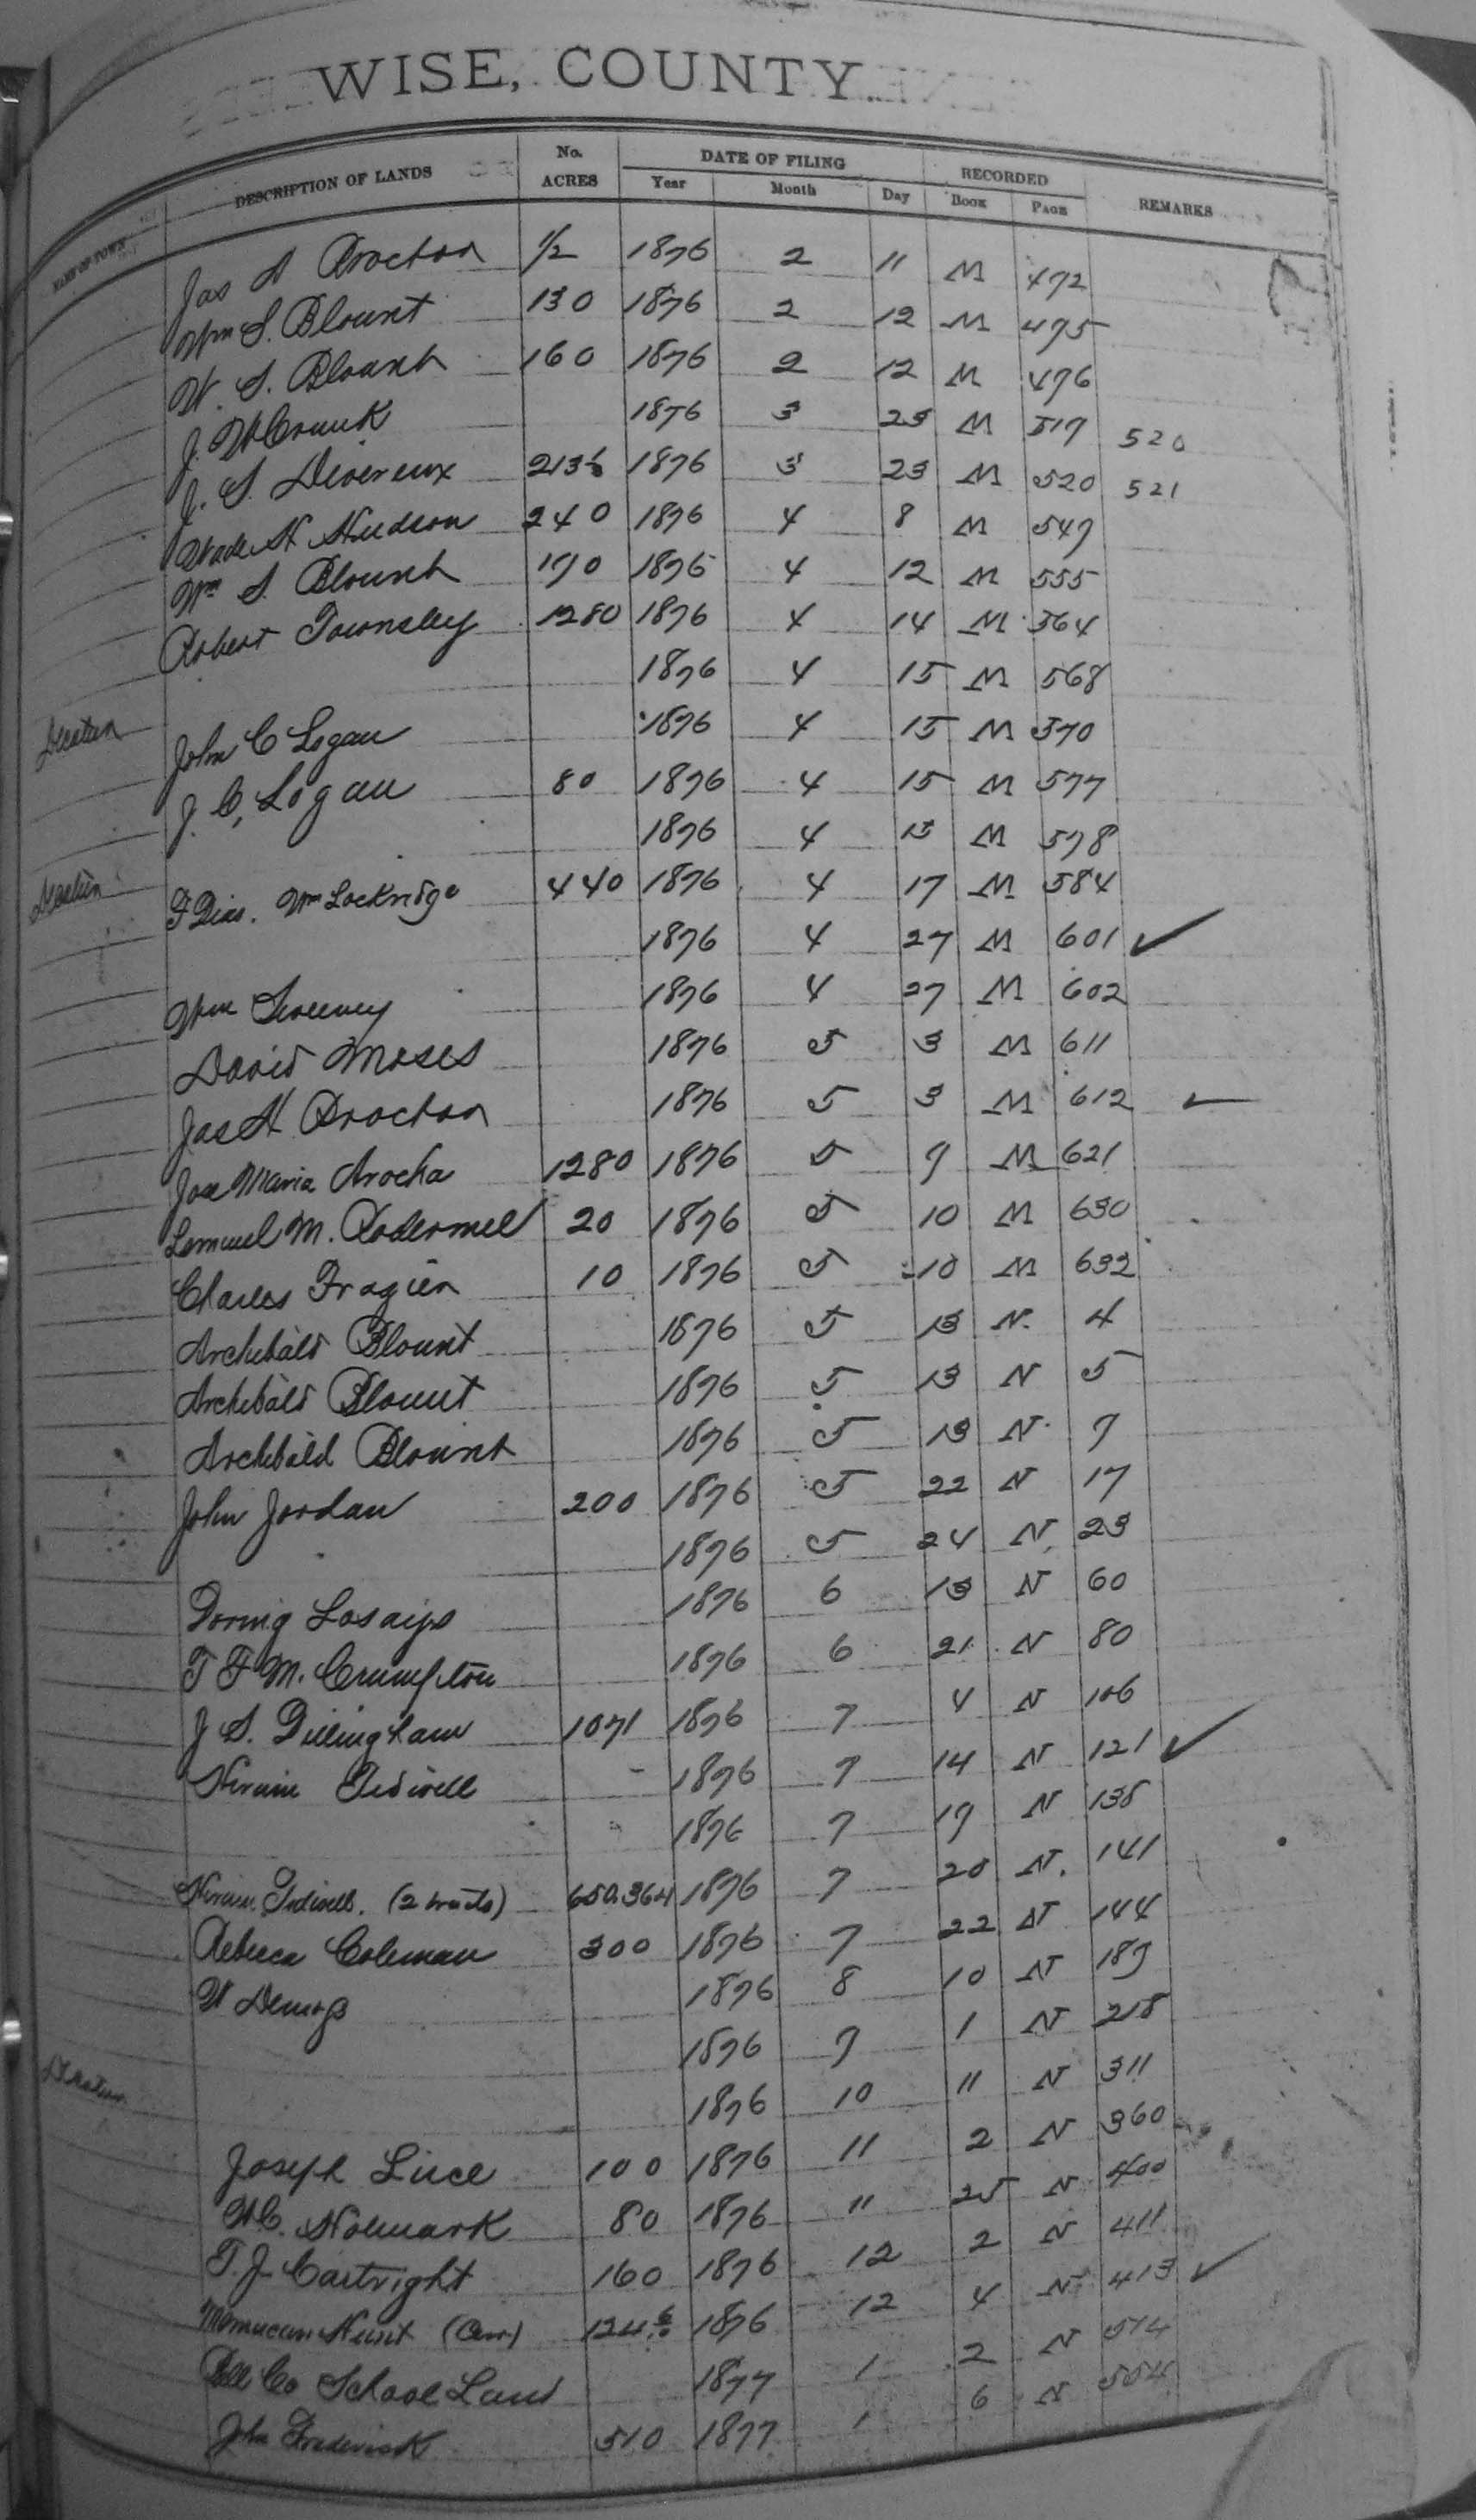 WISE, COUNTY.
NAME OF TOWN DESCRIPTION OF LANDS No. ACRES DATE OF FILING Year Month Day RECORDED BOOK PAGE REMARKS
Jas H Proctor 1/2 1876 2 11 M 472
Wm S. Blount 130 1876 2 12 M 475
W. S. Blount 160 1876 2 12 M 476
J. W Crank 1876 3 23 M 519 520
J. S. Devereux 1876 3 23 M 520 521
Wade H Hudson 240 1876 4 8 M 549
Wm S. Blount 170 1876 4 12 M 555
Robert Townsley 1280 1876 4 14 M 564
1876 4 15 M 568
Decatur John C Logan 1876 4 15 M 570
J. C, Logan 80 1876 4 15 M 577
1876 4 15 M 578
Decatur Wm Lockridge 440 1876 4 17 M 584
1876 4 27 M 601 ✓
Wm Sweeney 1876 4 27 M 602
David Moses 1876 5 3 M 611
Jas H Proctor 1876 5 3 M 612 ✓
Jose Maria Arocha 1280 1876 5 9 M 621
Lemuel M. Rodermel 20 1876 5 10 M 630
Charles Frazier 10 1876 5 10 M 632
Archibald Blount 1876 5 13 N. 4
Archibald Blount 1876 5 13 N 5
Archibald Blount 1876 5 13 N 7
John Jordan 200 1876 5 22 N 17
1876 5 24 N 23
1876 6 13 N 60
T F M. Crumpton 1876 6 21 N 80
J S. Dillingham 1071 1876 7 4 N 106
Hiram Tidwell 1876 7 14 N 121 ✓
1876 7 19 N 138
Hiram Tidwell. (2 tracts) 650.364 1876 7 20 N. 141
Rebecca Coleman 300 1876 7 22 N 144
1876 8 10 N 189
1876 9 1 N 218
Decatur 1876 10 11 N 311
Joseph Lice 100 1876 11 2 N 360
80 1876 11 25 N 400
T. J. Cartright 160 1876 12 2 N 411
Memucan Hunt 1876 12 4 N 413 ✓
Bell Co School Land 1877 1 2 N 514
John Frederick 510 1877 1 6 N 554